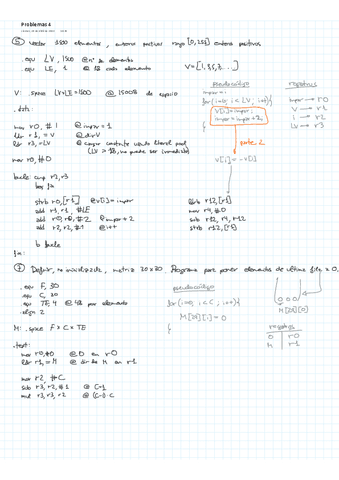 Problemas 4
⑤ vector 1500 elementos, entero positivos rango [0,255] enteros positivos
.equ LV, 1500 @ nº de elementos
.equ LE, 1 @ 1B cada elemento
V=[1,3,5,7,...]
V: .space LV*LE=1500 @ 1500B de espacio
pseudocódigo
registros
impar=1
for(i=0; i<LV; i++){
V[i]=impar;
impar=impar+2;
}
parte 2
V[i]=-V[i]
impar → r0
V → r1
i → r2
LV → r3
.data:
mov r0, #1 @ impar=1
ldr r1, =V @ dirV
ldr r3, =LV
mov r2, #0
bucle: cmp r2, r3
strb r0, [r1] @ V[i]=impar
add r1, r1, #LE
add r0, r0, #2 @ impar+2
add r2, r2, #1 @ i++
b bucle
ldrb r12, [r1]
mov r4, #0
sub r12, r4, r12
strb r12, [r1]
fin:
⑦ Definir, no inicializada, matriz 30x30. Programa para poner elementos de última fila x 0.
.equ F, 30
.equ C, 30
.equ TE, 4 @ 4B por elemento
.align 2
M: .space F x C x TE
pseudocódigo
for(i=0; i<C; i++){
M[29][i]=0
}
M[29][0]
registros
0 r0
M r1
.text:
mov r0, #0 @ 0 en r0
ldr r1, =M @ dir de M en r1
mov r2, #C
sub r3, r2, #1 @ C-1
mul r3, r3, r2 @ (C-1)·C